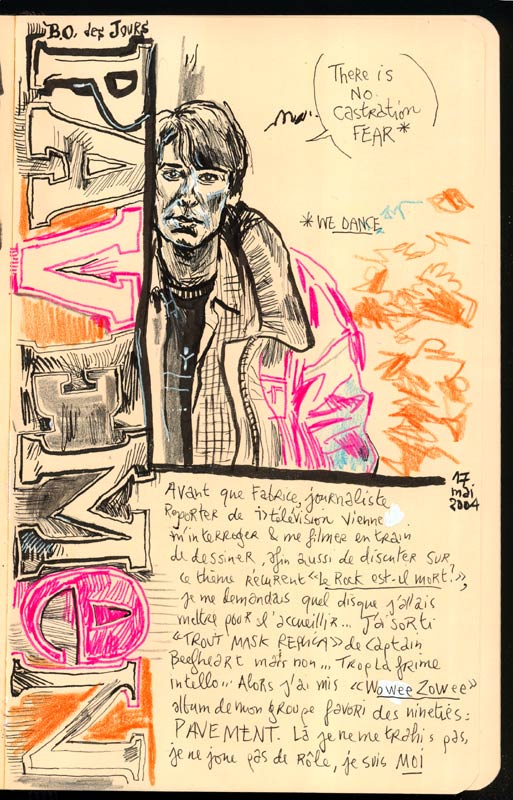 B.O. des JOURS
PAVEMEN
There is
NO
castration
FEAR*
*WE DANCE
17
mai
2004
Avant que Fabrice, journaliste
Reporter de i>télévision Vienne
m'interroger & me filmer en train
de dessiner, afin aussi de discuter SUR
ce thème récurent «Le Rock est-il mort?»,
je me demandais quel disque j'allais
mettre pour l'accueillir... J'ai sorti
«TROUT MASK REPLICA» de Captain
Beefheart mais non... Trop la frime
intello... Alors j'ai mis «Wowee Zowee»
album de mon groupe favori des nineties:
PAVEMENT. Là je ne me trahis pas,
je ne joue pas de rôle, je suis MOI